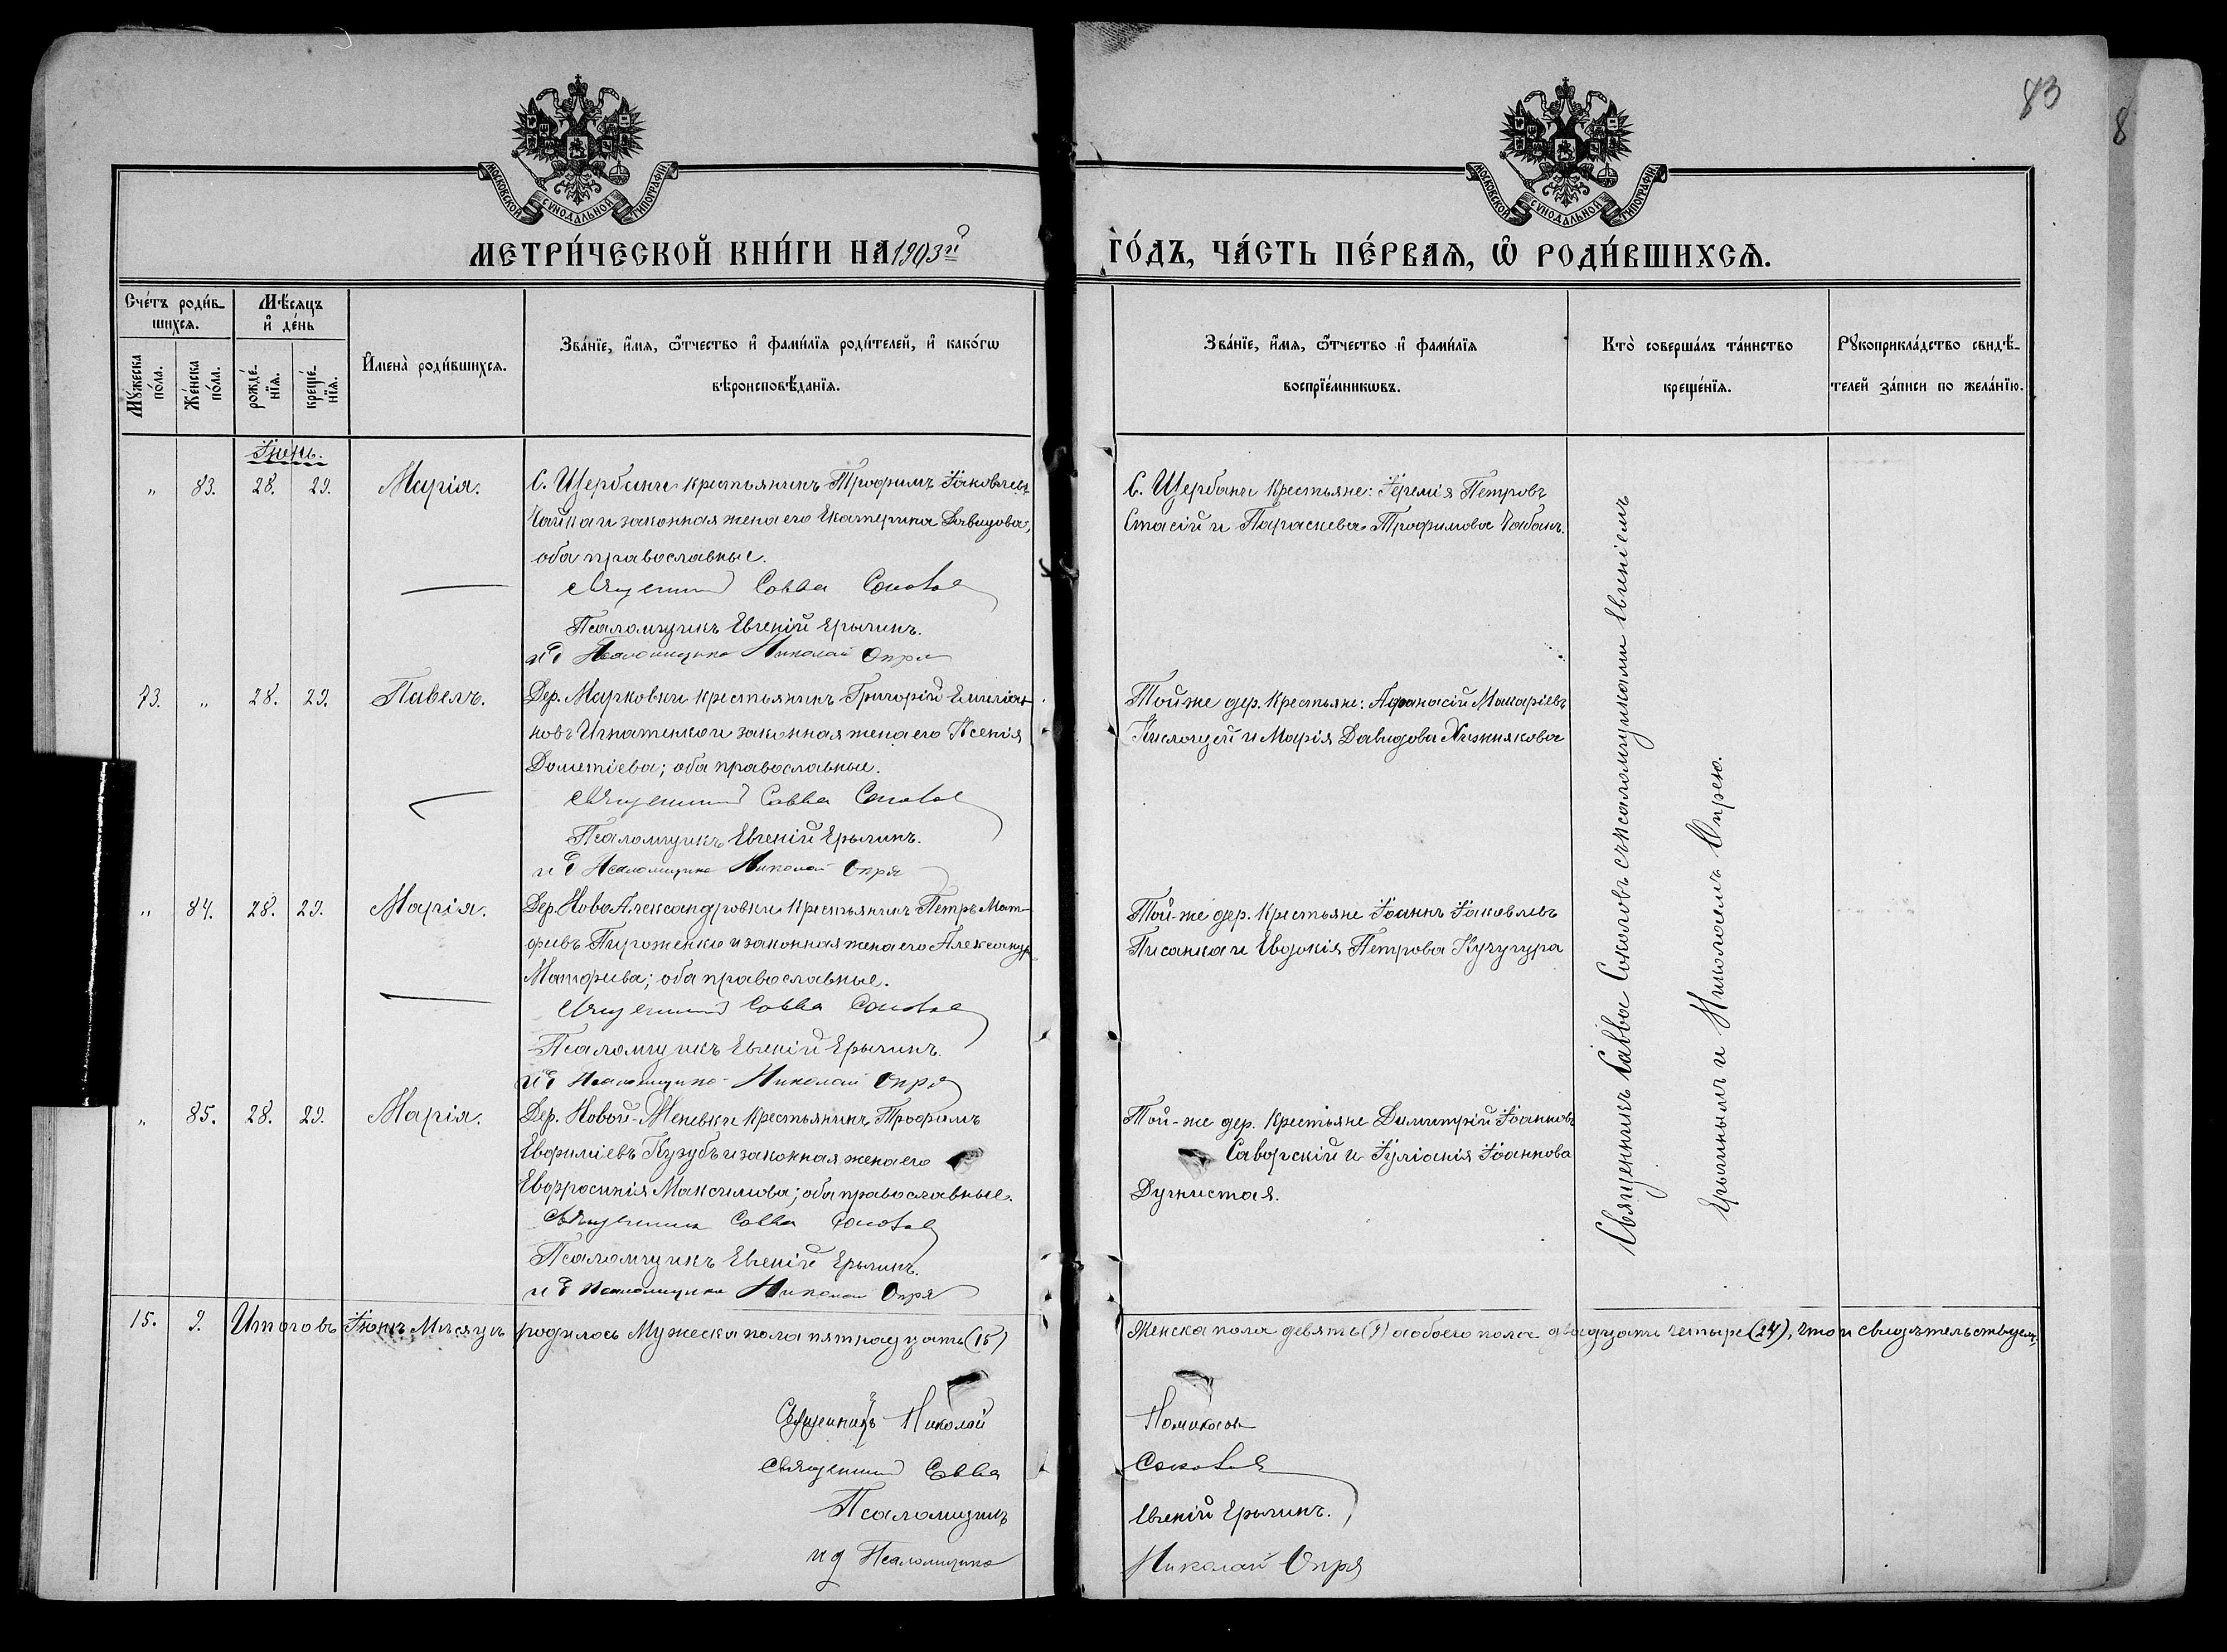 83
8
МОСКОВСКОЙ СУНОДАЛЬНОЙ ТИПОГРАФІИ
МОСКОВСКОЙ СУНОДАЛЬНОЙ ТИПОГРАФІИ
МЕТРИ́ЧЕСКОЙ КНИ́ГИ НА 1903й ГО́ДЪ, ЧА́СТЬ ПЕ́РВАѦ, Ѡ҆ РОДИ́ВШИХСѦ.
Сче́тъ роди́в-
шихсѧ.
Мѣ́сѧцъ
и҆ де́нь
Мꙋ́жеска
по́ла.
Же́нска
по́ла.
рожде́-
нїѧ.
креще́-
нїѧ.
И҆мена̀ роди́вшихсѧ.
Зва́нїе, и҆́мѧ, ѻ҆́тчество и҆ фами́лїѧ роди́телей, и҆ како́гѡ
вѣроисповѣ́данїѧ.
Зва́нїе, и҆́мѧ, ѻ҆́тчество и҆ фами́лїѧ
воспрїе́мникѡвъ.
Кто̀ соверша́лъ та́инство
креще́нїѧ.
Рꙋкоприкла́дство свидѣ́-
телей за́писи по жела́нїю.
Іюнь.
„ 83. 28. 29. Марія.
С. Щербани крестьянинъ Трофимъ Іаковлевъ
Чайка и законная жена его Екатерина Давидова,
оба православные.
Священникъ Савва Соколов
Псаломщикъ Евгеній Ерычинъ.
и д Псаломщика Николай Опря
С. Щербани крестьяне: Іеремія Петровъ
Стасій и Параскева Трофимова Чабан.
73. „ 28. 29. Павелъ.
Дер. Марковки крестьянинъ Григорій Емиліа-
новъ Игнатенко и законная жена его Ксенія
Дометіева; оба православные.
Священникъ Савва Соколов
Псаломщикъ Евгеній Ерычинъ.
и д Псаломщика Николай Опря
Той же дер. крестьяне: Афанасій Макаріевъ
Кислощей и Марія Давидова Хижнякова
„ 84. 28. 29. Марія.
Дер. НовоАлександровки крестьянинъ Петръ Мат-
фиевъ Пироженко и законная жена его Александр
Матфиева; оба православные.
Священникъ Савва Соколов
Псаломщикъ Евгеній Ерычинъ.
и д Псаломщика Николай Опря
Той-же дер. крестьяне Іоаннъ Іаковлевъ
Писанка и Евдокія Петрова Кучугура
„ 85. 28. 29. Марія.
Дер. Новой-Меневки крестьянинъ Трофимъ
Евфиміевъ Кузубъ и законная жена его
Евфросинія Максимова; оба православные.
Священник Савва Соколов
Псаломщикъ Евгеній Ерычинъ.
и д Псаломщика Николай Опря
Той-же дер. крестьяне Димитрій Іоанновъ
Саворскій и Іуліанія Іоаннова
Дугнистая.
Священникъ Савва Соколовъ съ псаломщиками Евгеніемъ
Ерычинымъ и Николаемъ Опрею.
15. 9. Итого въ Іюнѣ Мѣсяцѣ родилось Мужеска пола пятнадцать (15) Женска пола девять (9) а обоего пола двадцать четыре (24), что и свидѣтельствуемъ
Священникъ Николай
Священникъ Савва Соколов
Псаломщикъ Евгеній Ерычинъ.
и д Псаломщика Николай Опря